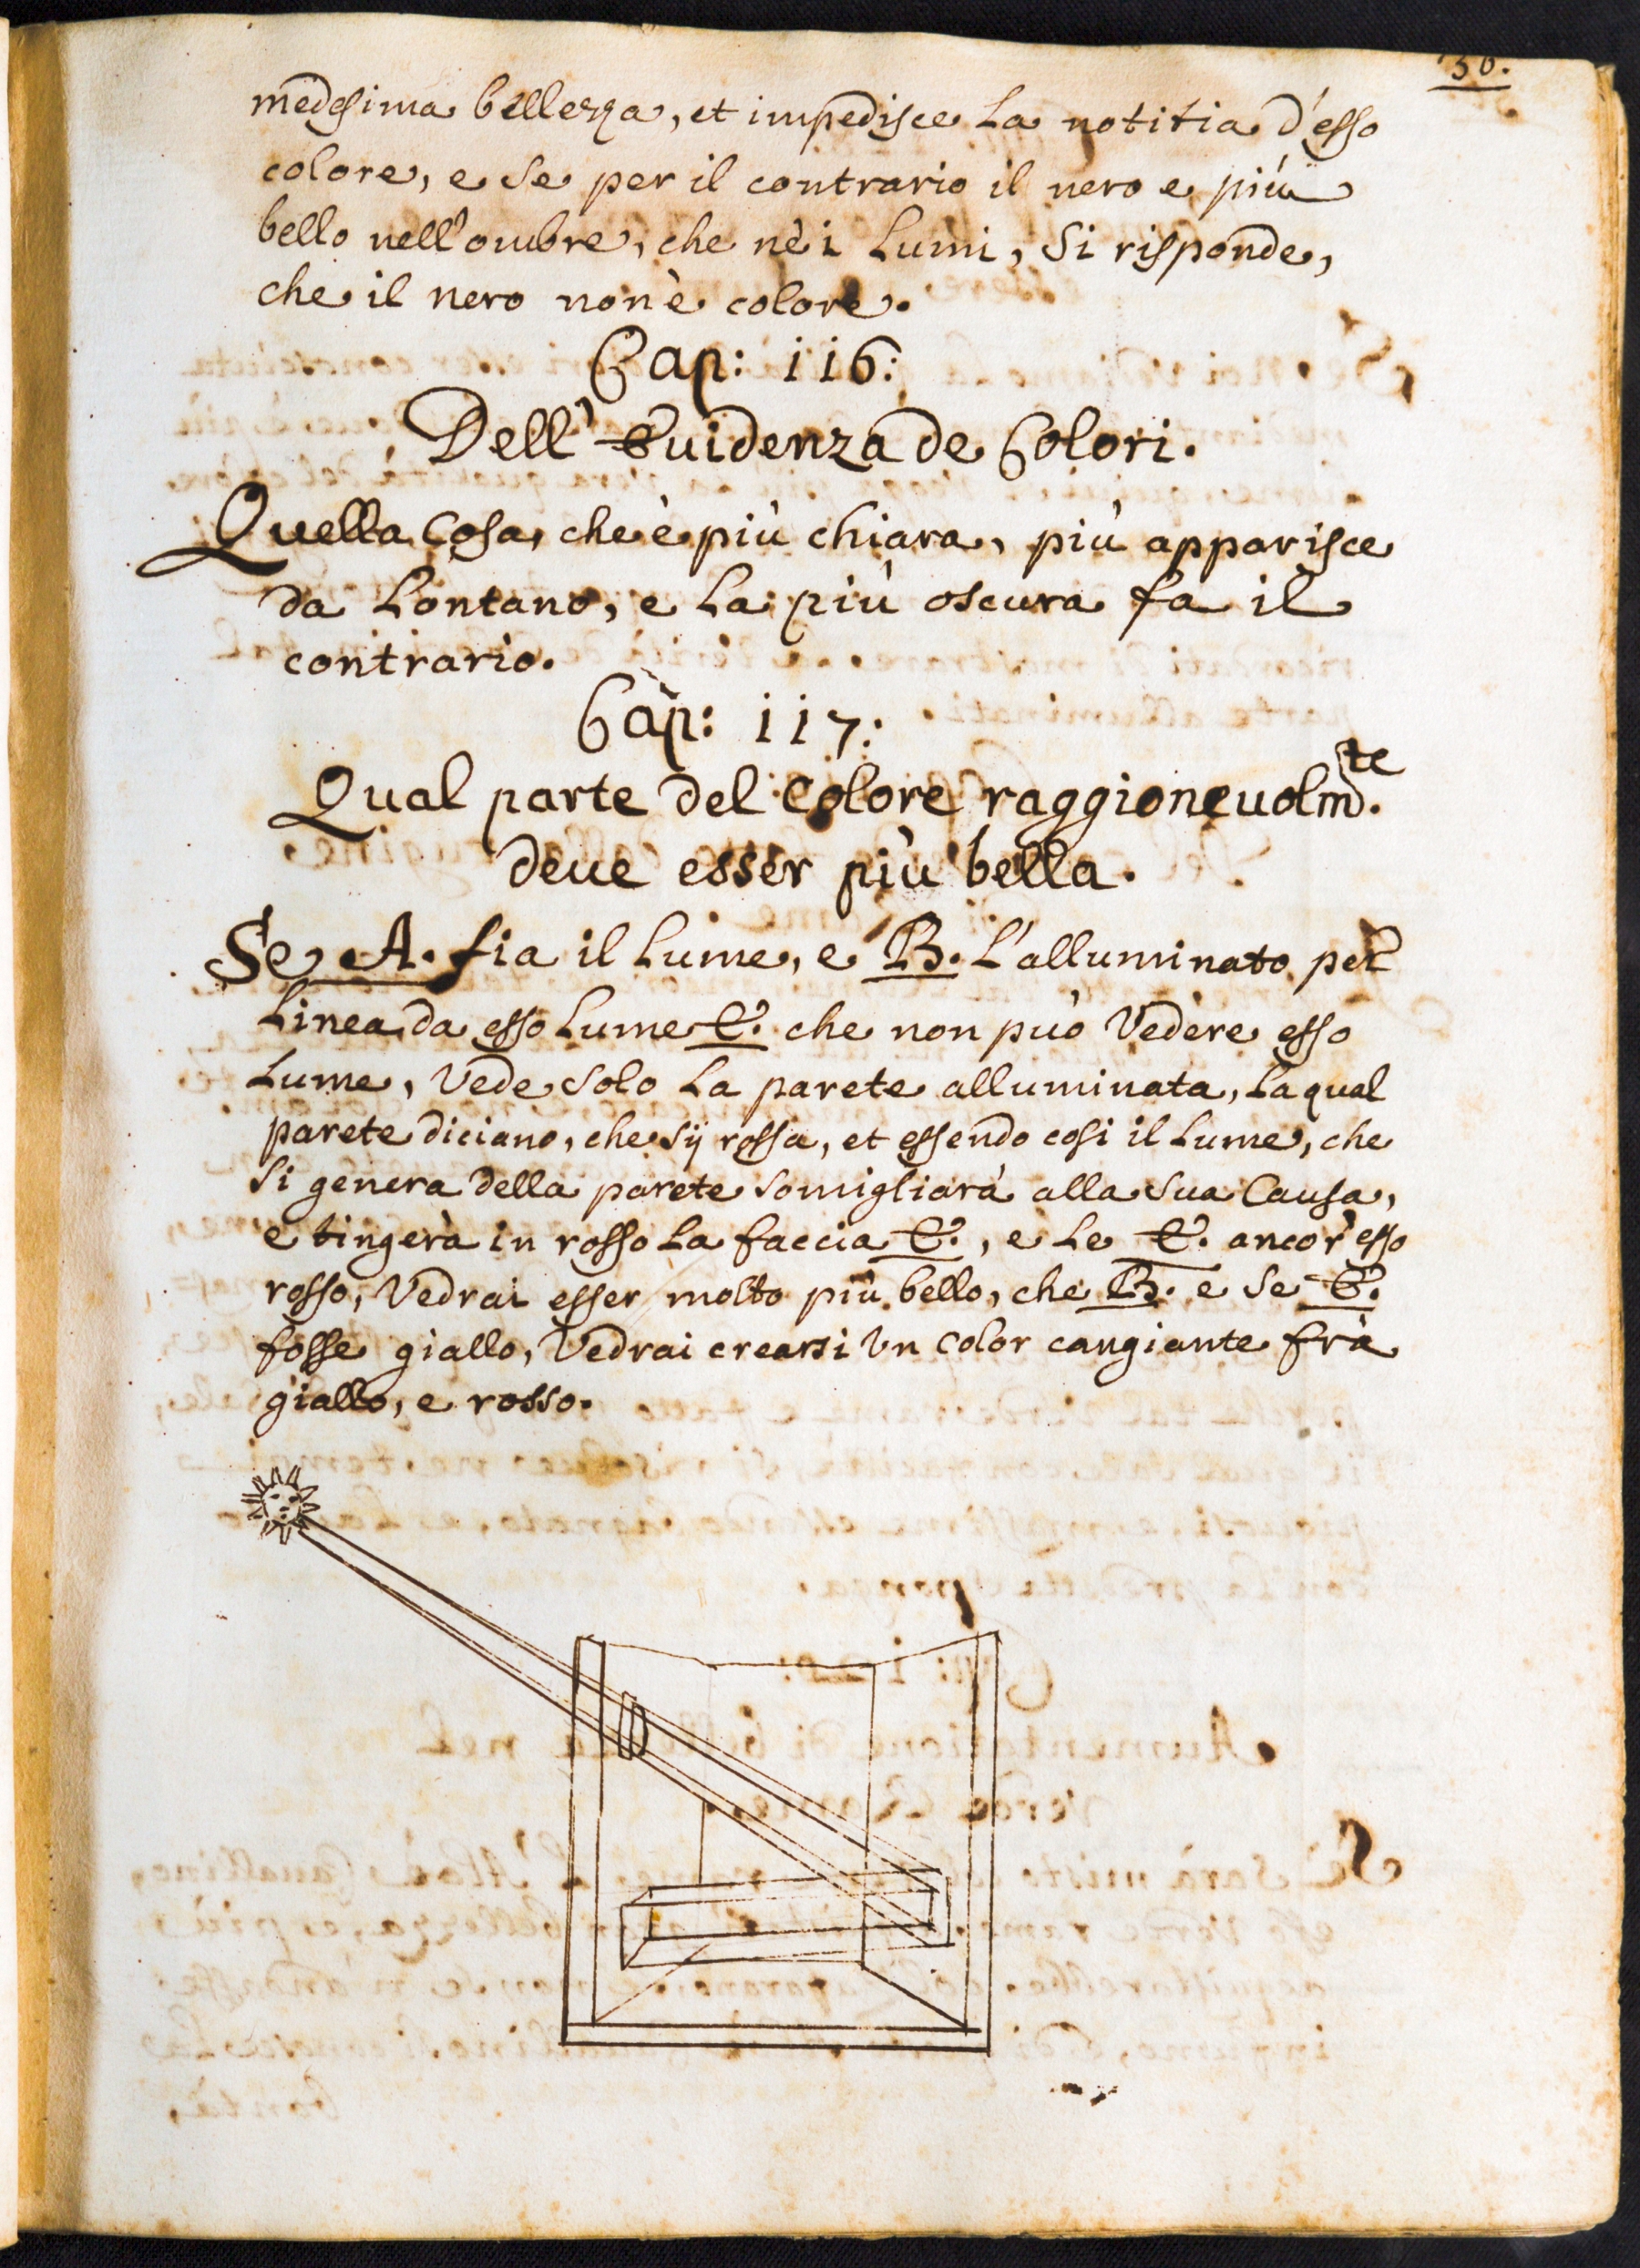 36.
medesima bellezza, et impedisce la notitia d'esso
colore, e se per il contrario il nero e più
bello nell'ombre, che nè i Lumi, Si risponde,
che il nero non è colore.
Cap: 116:
Dell' Euidenza de Colori.
Quella Cosa, che è più chiara, più apparisce
da Lontano, e La più oscura fa il
contrario.
Cap: 117:
Qual parte del Colore raggioneuolmte.
deue esser più bella.
Se A. fia il Lume, e B. L'alluminato per
Linea da esso Lume E. che non può Vedere esso
Lume, Vede solo La parete alluminata, La qual
parete diciano, che sij rossa, et essendo cosi il Lume, che
Si genera della parete somigliarà alla sua Causa,
e tingerà in rosso La faccia E., e se E. ancor'esso
rosso, Vedrai esser molto più bello, che B. e se E.
fosse giallo, Vedrai crearsi Vn Color cangiante frà
giallo, e rosso.